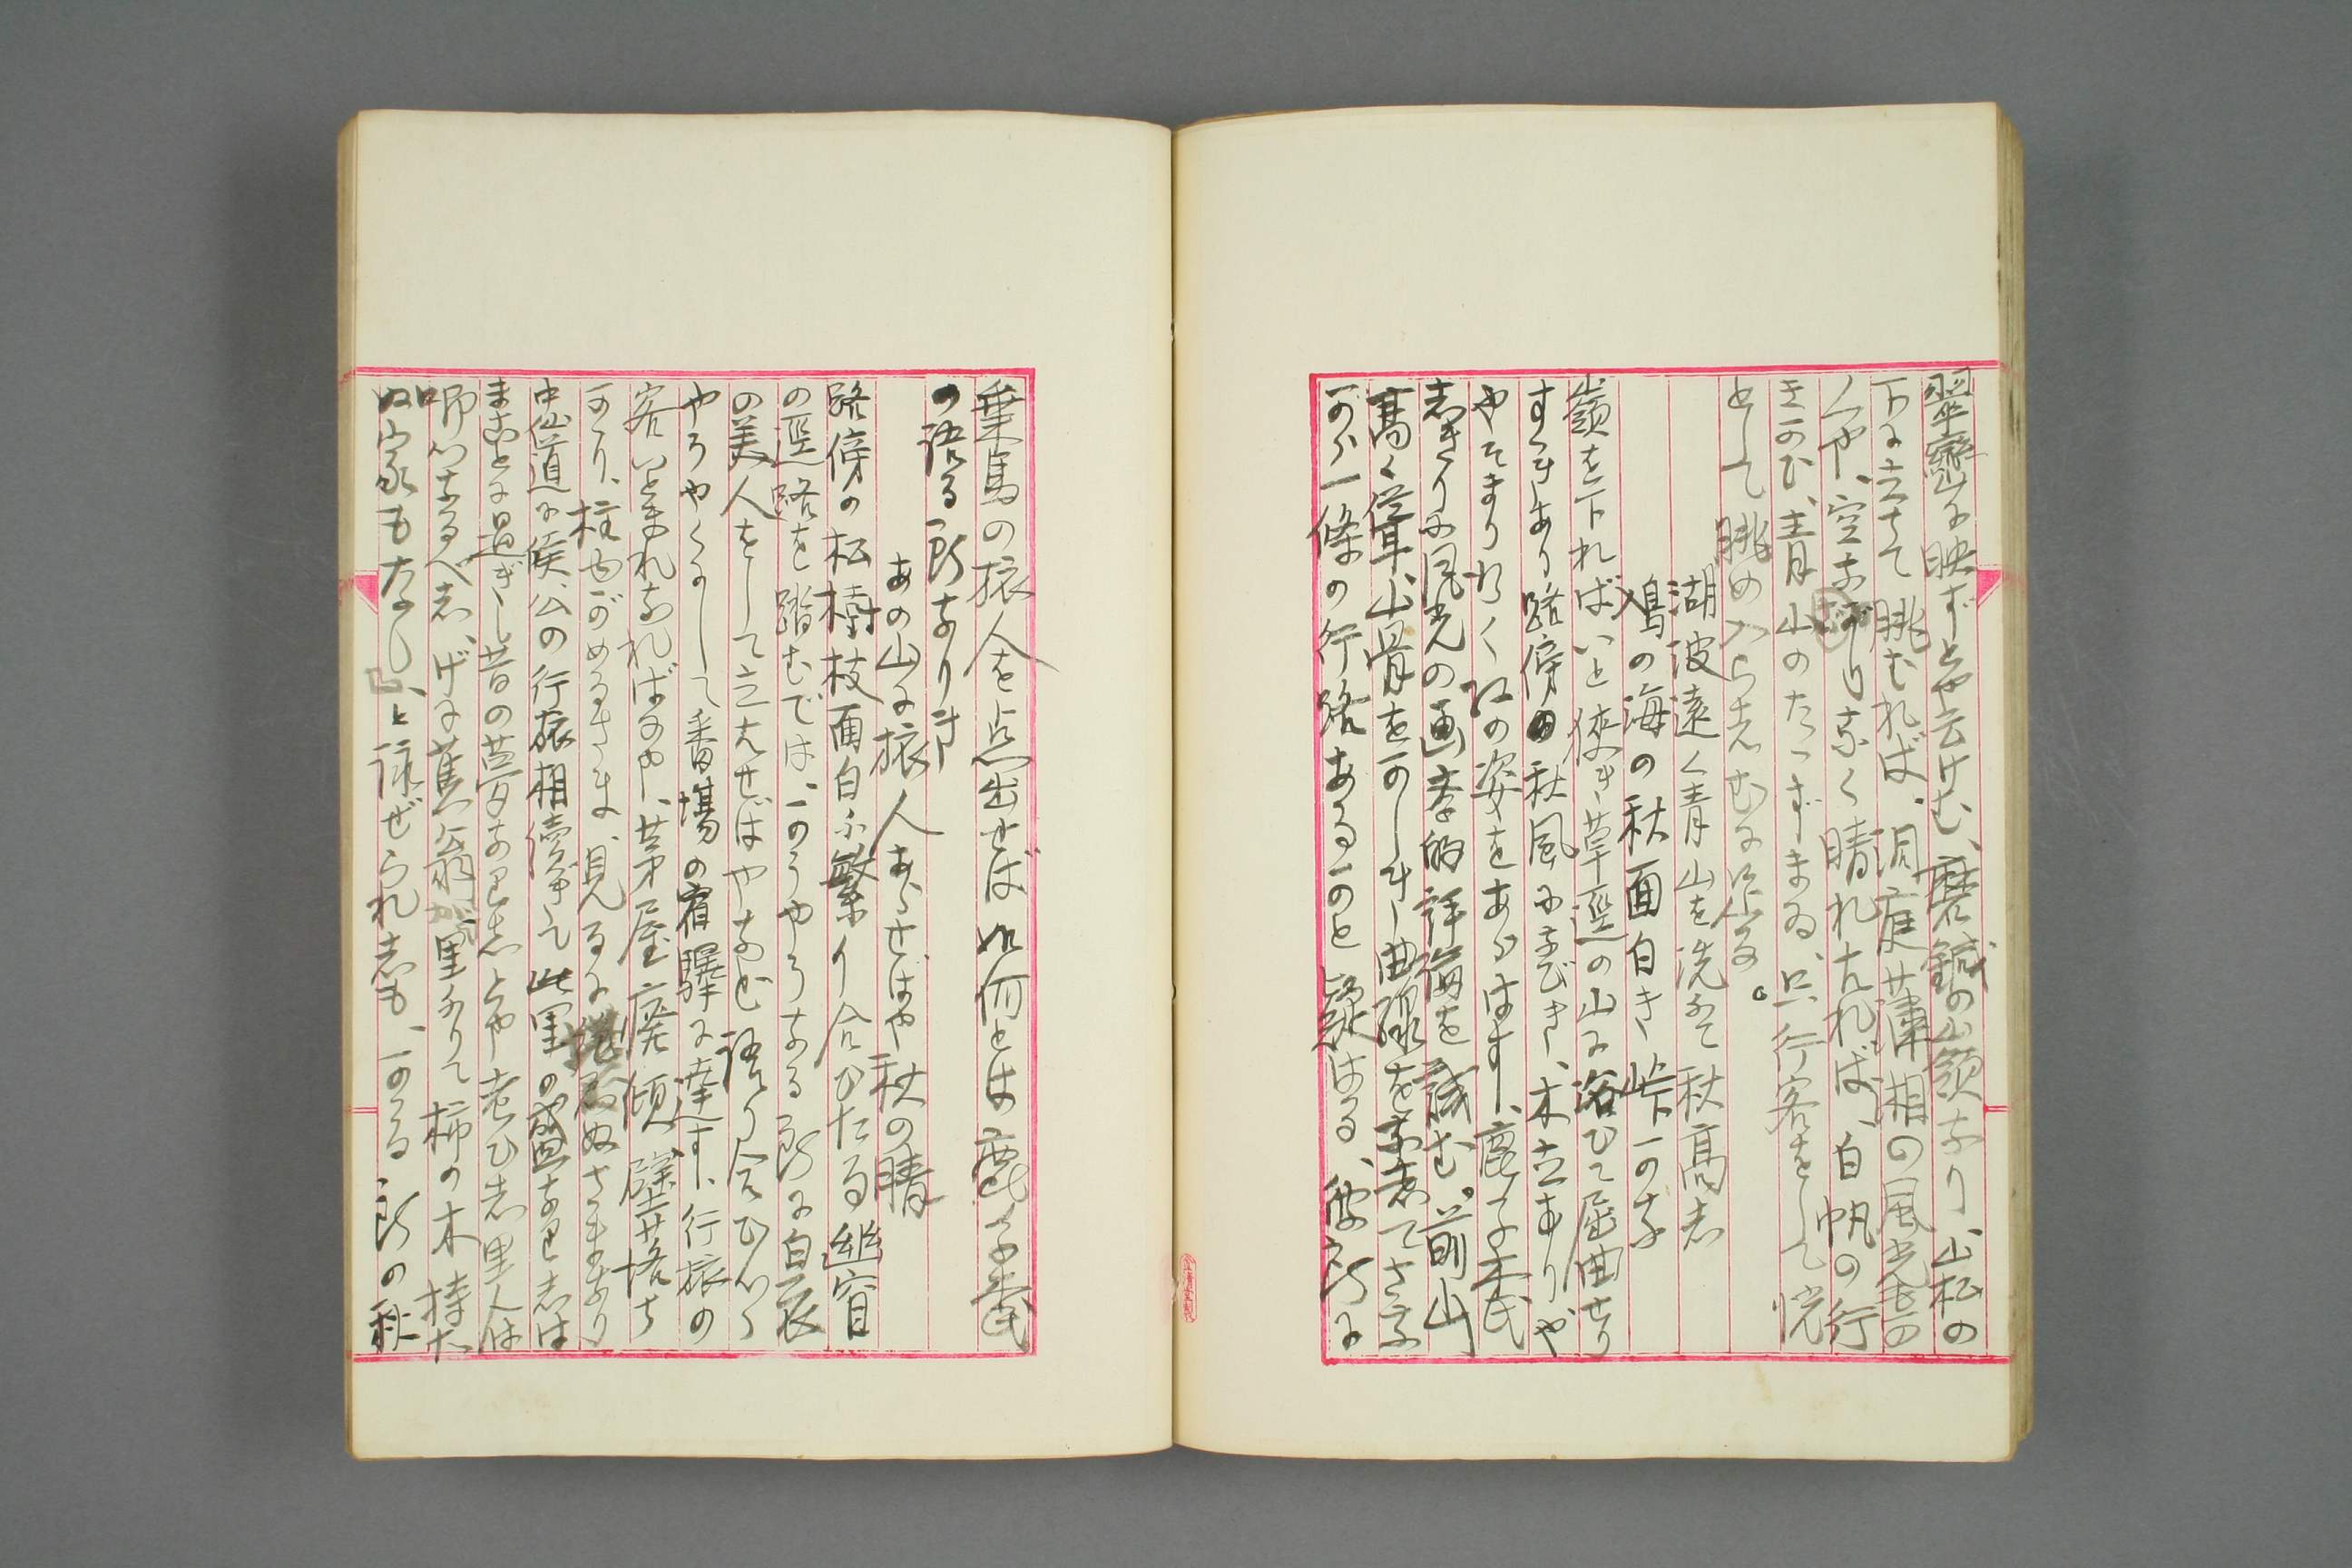 翠黛山に映ずとや云けむ、磨鍼の山嶺なり、山松の
下に立ちて眺むれば、洞庭瀟湘の風光
くや、空 りなく晴れたれば、白帆の行
きかひ、青山のたゝずまゐ、只行客をして恍
として眺め入らしむ
湖波遠く青山を洗ふて秋高し
鳰の海の秋面白き峠かな
嶺を下ればいと狭き草逕の山に沿ひて屈曲せり
すゝきあり路傍の秋風になびき、木立ありが
やてまりれくの姿をあらはす、鹿子木氏
しきりに風光の画幸的評論を試む、前山
高く聳へ山骨を
から一條の行路あることと疑はる、彼所に
乗馬の旅人を点出せば如何とは鹿子木氏
の語る所なりき
あの山に旅人あらせばや秋の晴
路傍の松樹枝面白ふ繁り合ひたる幽宵
の逕路を踏むでは、かうやうなる所に白衣
の美人をして立たせばやなど語り合ひつゝ
やうやくにして番場の宿驛に達す、行旅の
客いとまれなればにや、茅屋廃傾壁落ち
かり、柱もゆがめるさま、見るに ぬさまなり
中仙道に侯公の行旅相續ぎて此里の盛なりしは
まことに過ぎし昔の夢なりしとや老ひし里人は
喞つなるべし、げに蕉翁が里ふりて柿の木持た
ぬ家もなし、と詠ぜられしも、かゝる所の秋